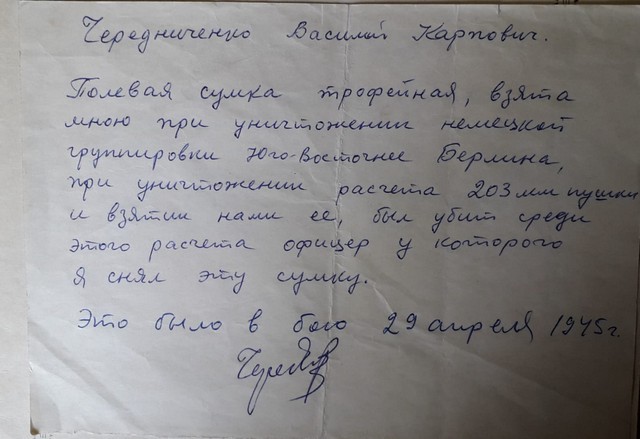 Чередниченко Василий Карпович.
Полевая сумка трофейная, взята
мною при уничтожении немецкой
группировки Юго-Восточнее Берлина,
при уничтожении расчета 203 мм пушки
и взятии нами ее, был убит среди
этого расчета офицер у которого
я снял эту сумку.
Это было в бою 29 апреля 1945г.